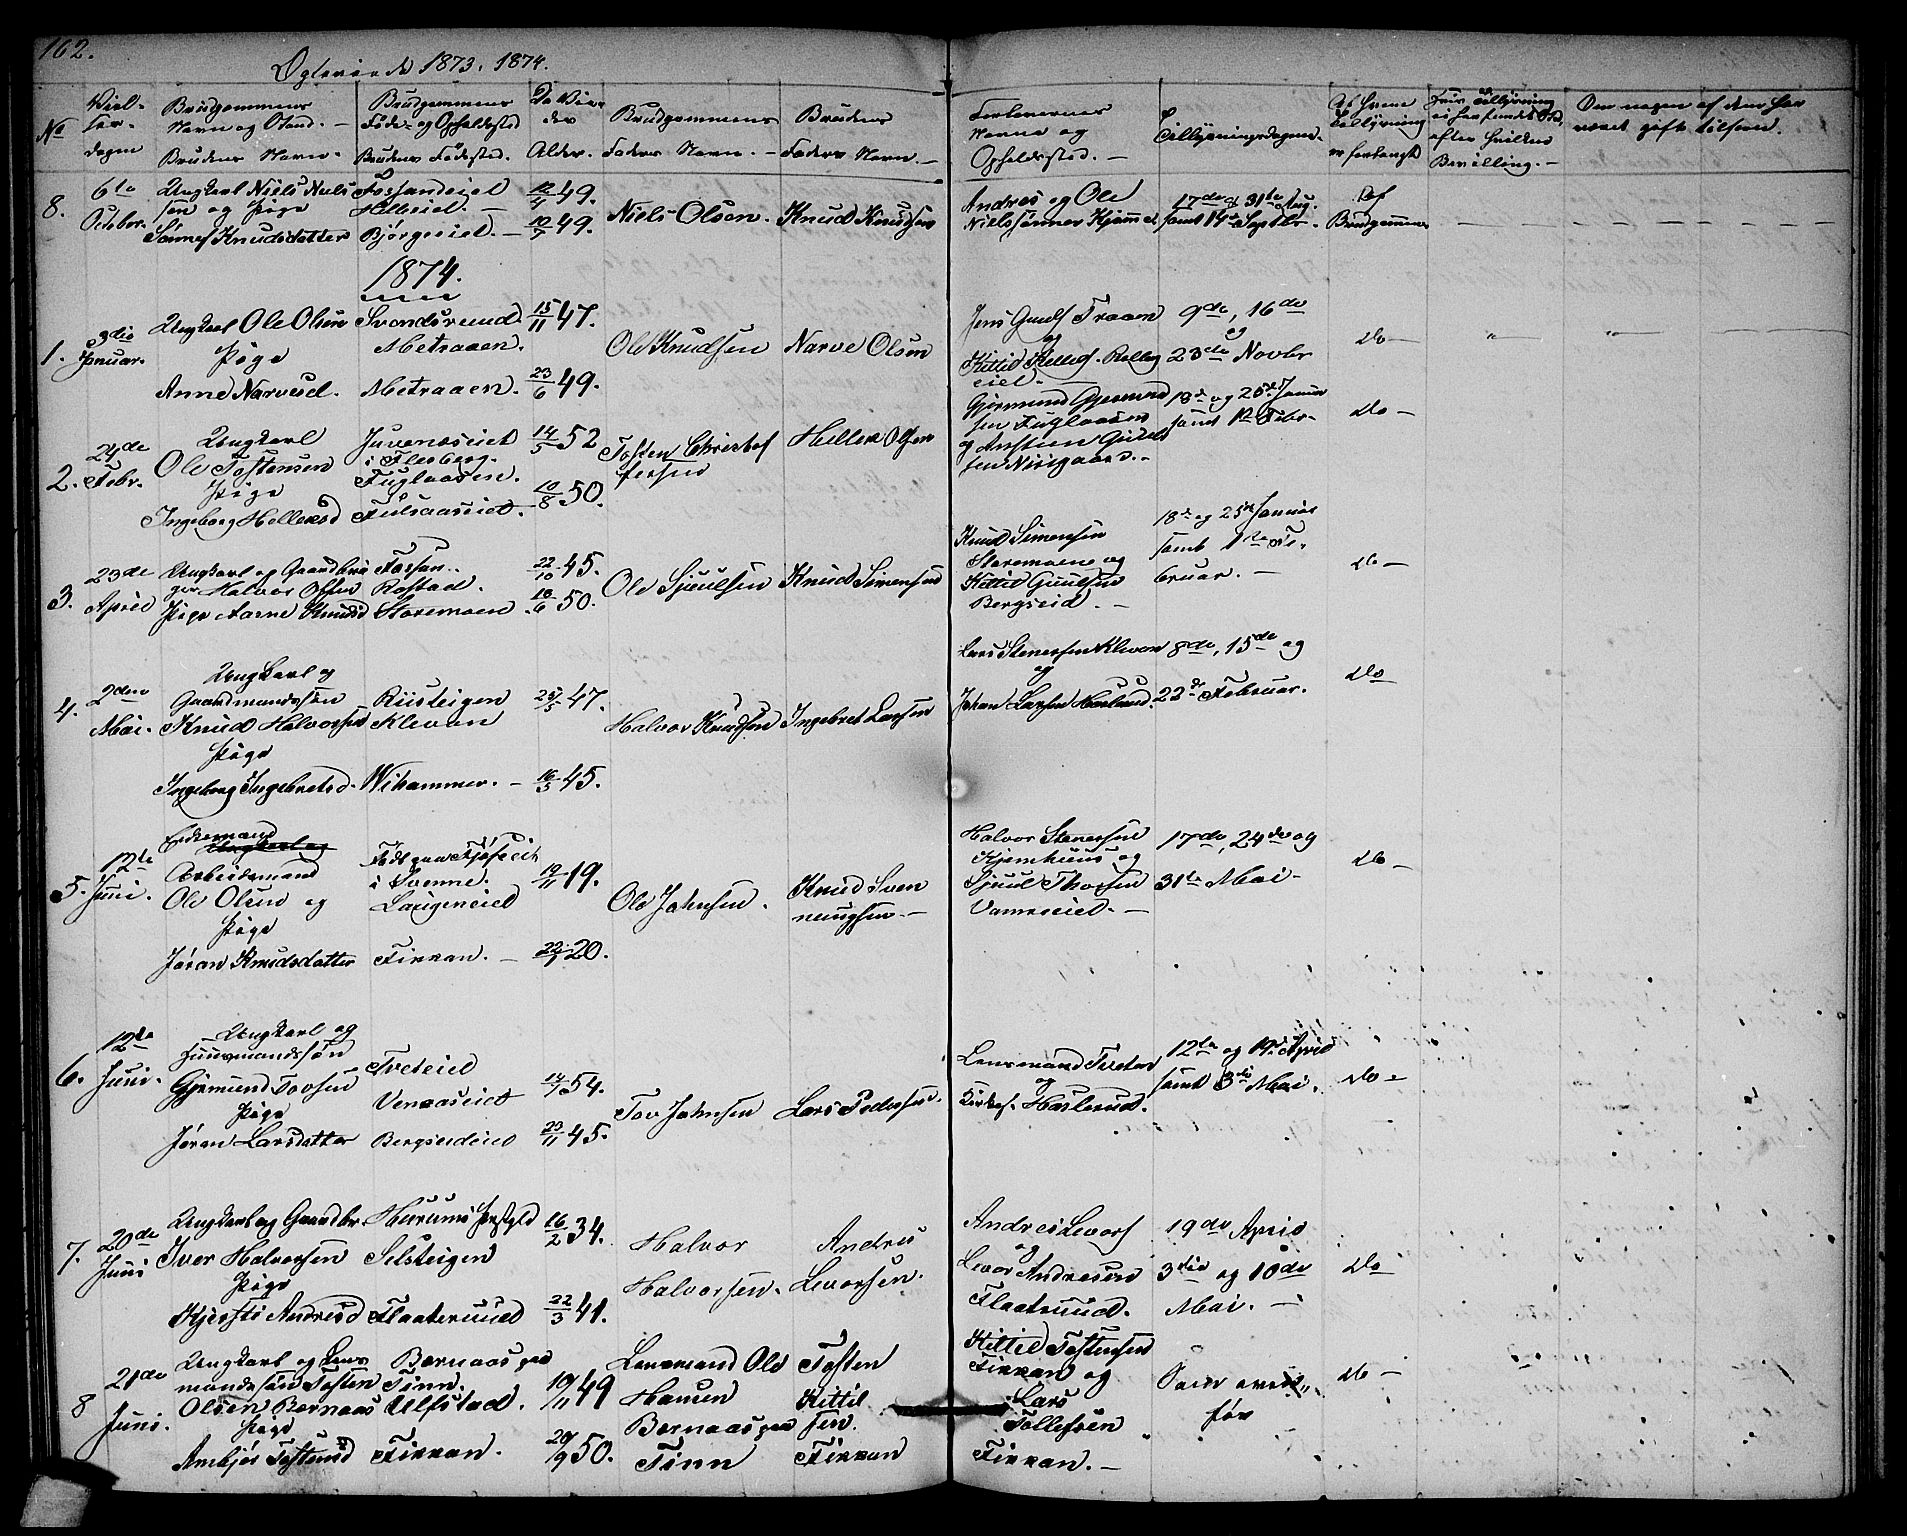 162.
Ægteviede 1873. 1874.
No
Viel-
ser-
dagen
Brudgommens
Navn og Stand. —
Brudens Navn. —
Brudgommens
Føde- og Opholdssted
Brudens Fødested.
De Vie-
des
Alder.
Brudgommens
Faders Navn. —
Brudens
Faders Navn. —
Forlovernes
Navne og
Opholdssted. —
Tillysningsdagene.
Af hvem
Tillysning
er forlangt
Om nogen af dem har
været gift tilforn.
8.
6te
October
Ungkarl Niels Niels
sen og Pige
Knudsdatter
Fossaneiet
Helleiet. —
Bjørgeiet. —
12/4 49.
49.
Niels Olsen.
Knud Knudsen
Andres og Ole
Nielssønner
17de & 31te Aug.
samt 14de Septbr.
Af
Brudgommen
1874.
1.
3die
Januar.
Ungkarl Ole Olsen
Pige
Anne Narvesd.
Svendsruud.
Metraaen.
Metraaen.
15/11 47.
23/6 49.
Ole Knudsen
Narve Olsen
Jens Traaen
og
Kittil
eiet.
9de, 16de
og
23de Novbr
do —
2.
24de
Febr.
Ungkarl
Ole Tostensen
Pige
Ingeborg Hellesd
Juvenæseiet
i Flesberg.
Fuglaasen.
14/5 52
10/8 50.
Tosten Christof
fersen
Helle Olsen
Gjermund Gjermund
sen Fuglaasen
og
sen
18de og 25de Januar
samt 1ste Febr.
do —
3.
23de
April
Ungkarl og Gaardbru
ger Halvor Olsen
Pige Aarne Knudsd
Fossan.
Rostad.
Storemoen.
22/10 45.
18/6 50.
Ole Sjuulsen
Knud Simensen
Knud Simensen
Storemoene og
Kittil Guulsen
Bergseid. —
18de og 25de Januar
samt 1ste Fe-
bruar. —
do —
4.
2den
Mai.
Ungkarl og
Gaardmandssøn
Knud Halvorsen
Pige
Ingeborg Ingebretsd.
Riisteigen
Klevan
Wihammer. —
25/5 47.
16/3 45.
Halvor Knudsen
Ingebret Larsen
Lars Stenersen Klevan
og
Johan Larsen
8de, 15de og
22de Februar.
do
5.
12te
Juni.
Enkemand
Ungkarl og
Arbeidsmand
Ole Olsen og
Pige
Jøran Knudsdatter
i Svenne.
Langeneiet
Fikkan. —
19/11 19.
20.
Ole Johnsen.
Knud Sven
nungsen. —
Halvor Stenersen
Kjemhuus og
Sjuul Thorsen
17de, 24de og
31te Mai.
do —
6.
12te
Juni.
Ungkarl og
Huusmandssøn
Gjermund Tovsen
Pige
Jøran Larsdatter
Tveteiet
Venaaseiet
Bergseideiet
54.
23/11 45.
Tov Johnsen
Lars Pedersen.
Lensmand Tveten
og
Kirkes. Haslerud.
12te og 19de April
samt 3die Mai.
do —
7.
20de
Juni
Ungkarl og Gaardbr.
Iver Halvorsen
Pige
Kjersti Andresd
Hurums Præstgjld
Selsteigen
Flaateruud
16/2 34.
22/3 41.
Halvor
Halvorsen.
Andres
Levorsen.
Andres Levors
og
Levor Andresen
Flaatruud.
19de April
3die og 10de
Mai. —
do
8
21de
Juni.
Ungkarl og Lens
mandssøn Tosten
Olsen Bernaas
Pige
Tostensd
Bernaas paa
Tinn.
Ulfstad.
Fikkan.
10/11 49
20/9 50.
Lensmand Ole
Hansen
Bernaas paa
Tinn
Tosten
Kittil
sen.
Fikkan
Kittil Tostensen
Fikkan og
Lars
Tollefsen
Fikkan. —
før
do —